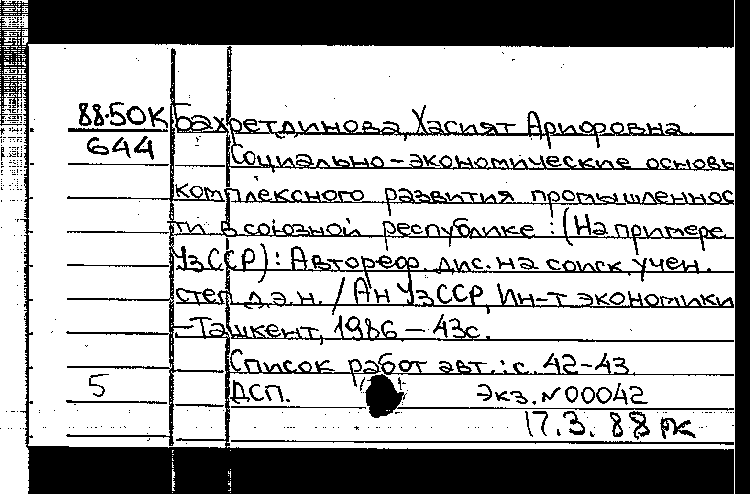 88-50К Бахретдинова, Хасият Арифовна
644 Социально-экономические основы
комплексного развития промышленнос
ти в союзной республике : (На примере
УзССР) : Автореф. дис. на соиск. учен.
степ. д.э.н. / Ан УзССР, Ин-т экономики
-Ташкент, 1986 - 43с.
Список работ авт. : с. 42-43
5 ДСП. Экз. № 00042
17.3.88